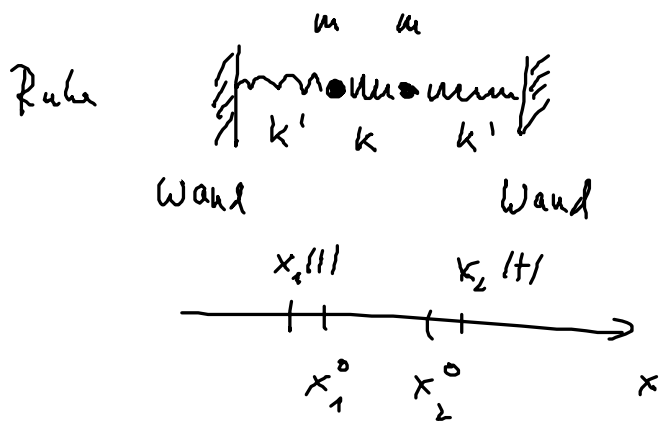 m m
Ruhe
k' k k'
Wand Wand
x₁(t) x₂(t)
x₁⁰ x₂⁰ x